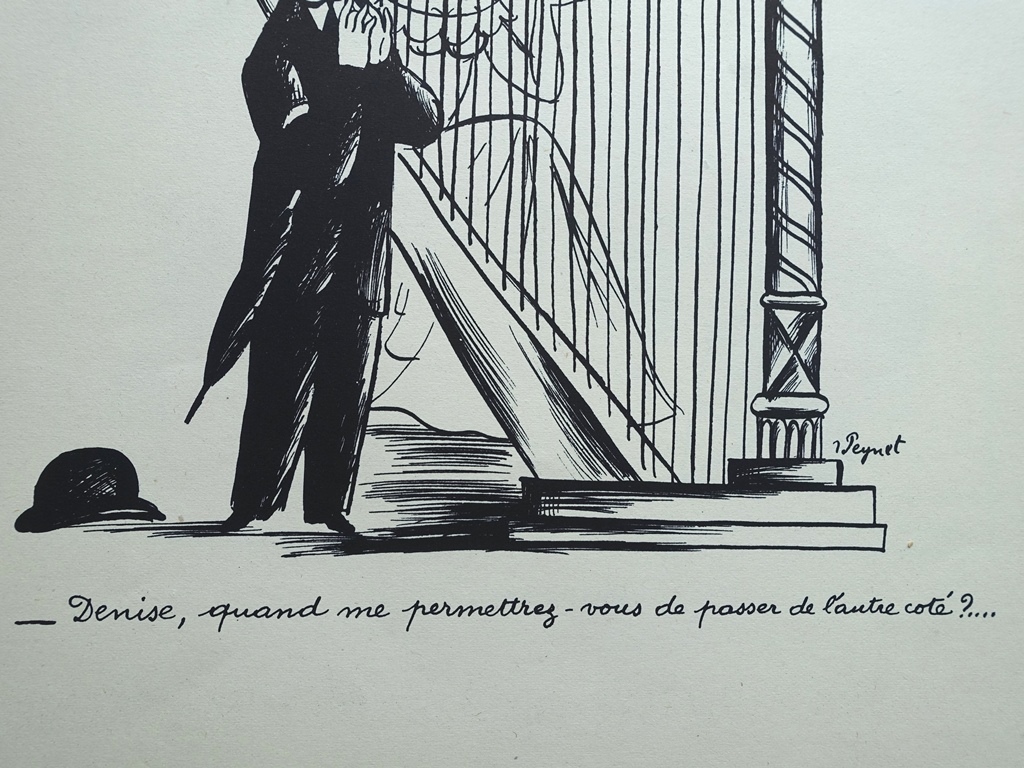 Peynet
— Denise, quand me permettrez-vous de passer de l'autre coté ?....